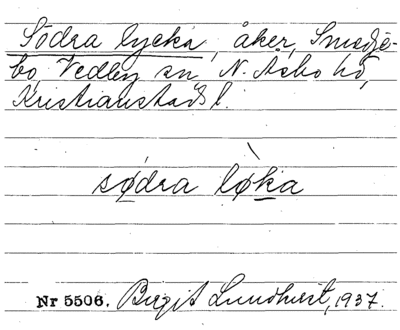 Södra lycka, åker, Smedje-
bo, Vedby sn, N. Åsbo hd,
Kristianstads l.
södra lø̀ka
Nr 5506. Birgit Lundkvist, 1937.